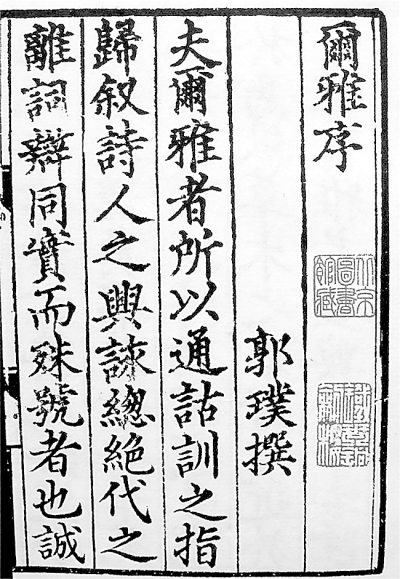 爾雅序
北京
圖書
館藏
郭璞撰
夫爾雅者所以通詁訓之指
歸叙詩人之興詠緫絶代之
離詞辯同實而殊號者也誠